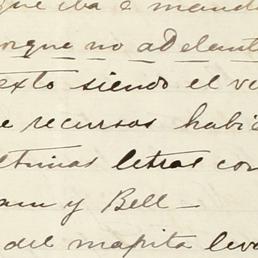 que iba a mand
orque no adelant
exto siendo el v
e recursos habi
ltimas letras con
am y Bell —
del mapita lev